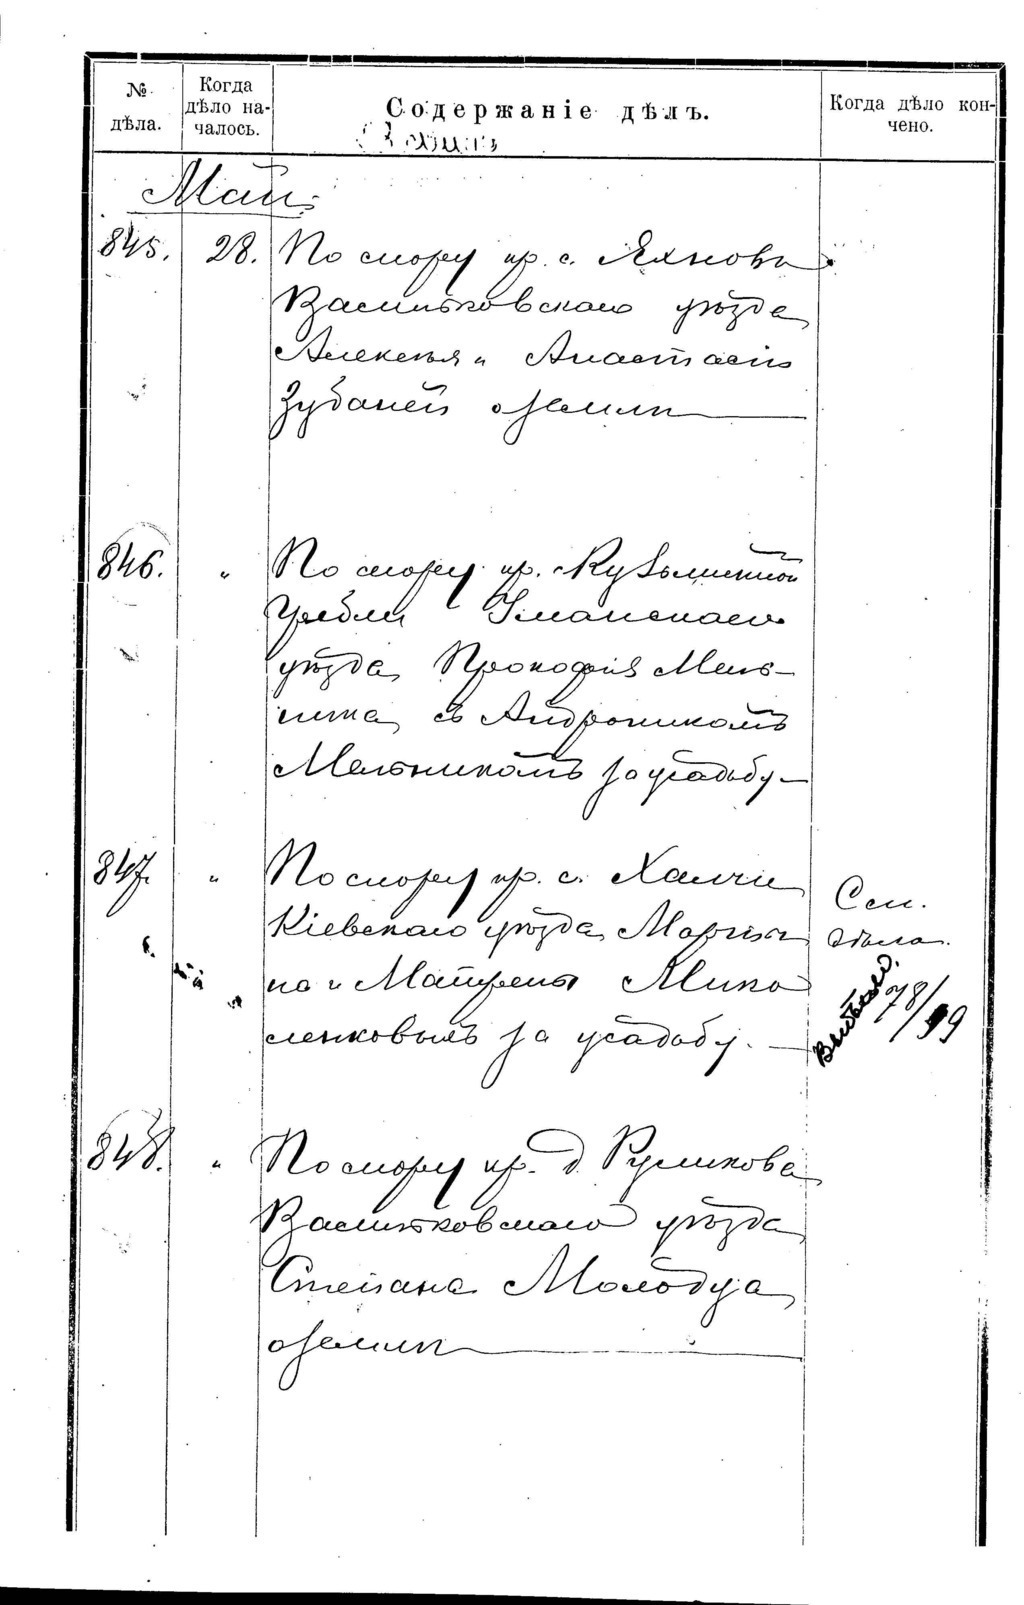 № дѣла.
Когда дѣло началось.
Содержаніе дѣлъ.
Когда дѣло кончено.
Май
845. 28. По спору кр. с. Яхновъ
Васильковскаго уѣзда
Алексѣя и Анастасіи
Зубаней о землѣ
846. " По спору кр. Кузьминой
Гребли Уманскаго
уѣзда, Прокофія Мель-
ника, съ Андроникомъ
Мельникомъ за усадьбу
847. " По спору кр. с. Халчи
Кіевскаго уѣзда, Мартина
на и Матрены Мико
ленковыхъ за усадьбу.
78/99
848. " По спору кр. д. Руликова
Васильковскаго уѣзда
Степана Молодца
о землѣ